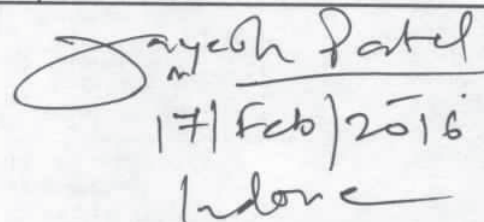 Jayesh Patel
17/Feb/2016
Indore